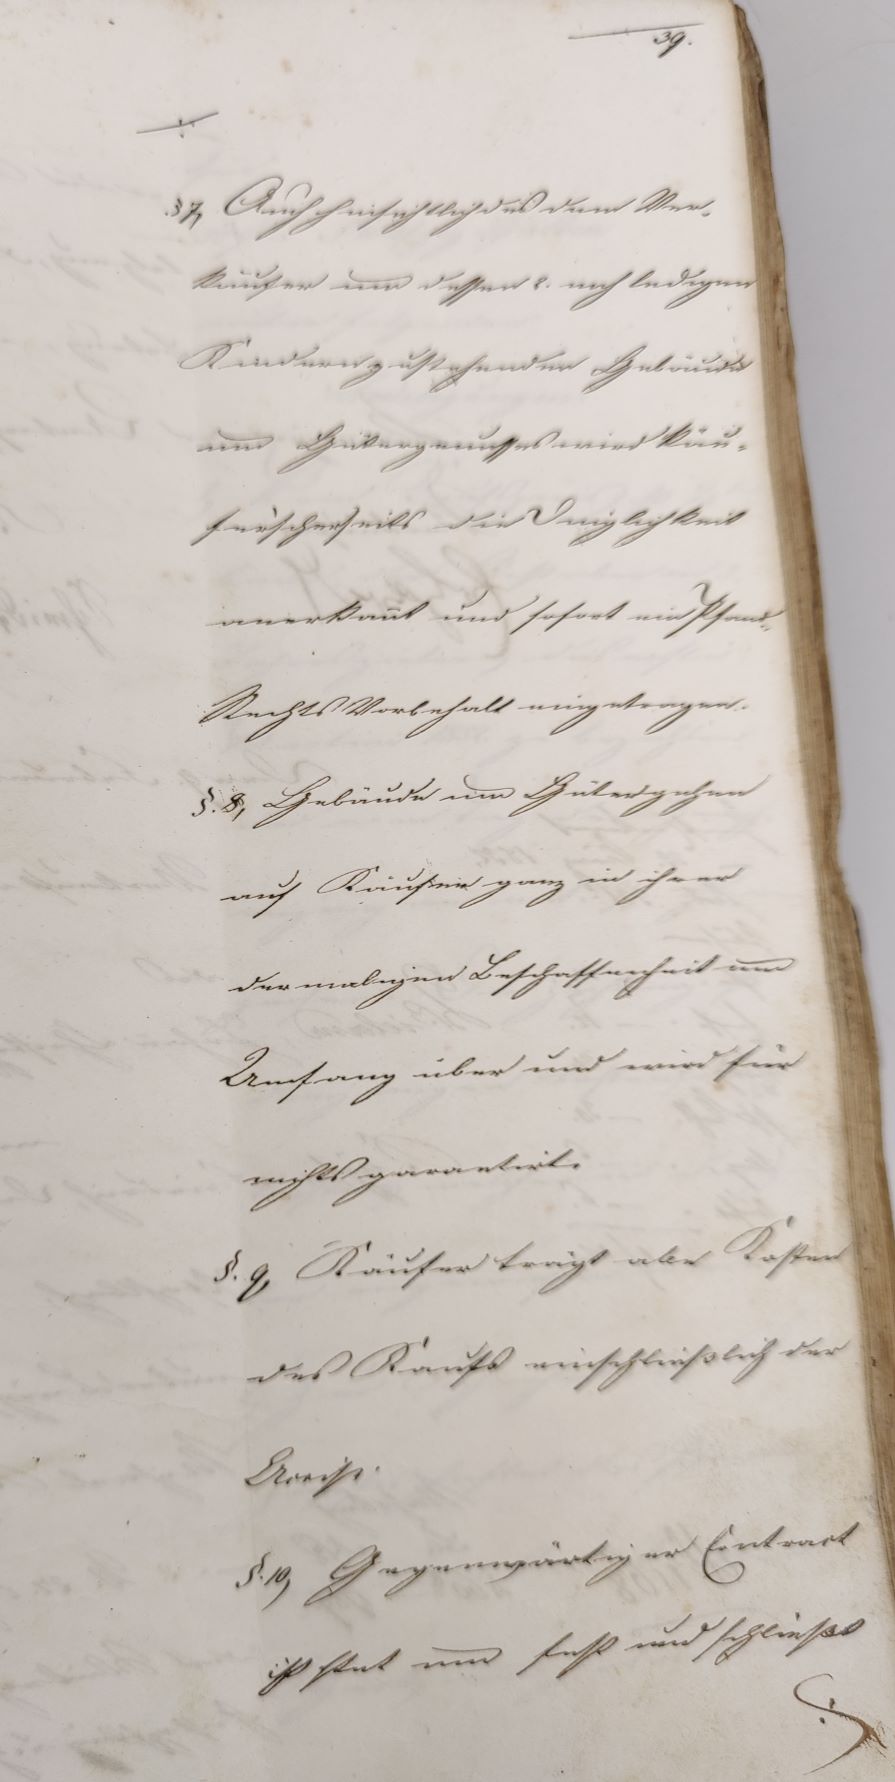 39.
§ 7, Auch hinsichtlich des dem Ver-
käufer und dessen 2. noch ledigen
Kindern zustehenden Gebäude
und Gütergenusses wird käu-
ferischerseits die Dinglichkeit
anerkannt und sofort ein Pfand-
Rechts Vorbehalt eingetragen.
§. 8, Gebäude und Güter gehen
auf Käufer ganz in ihrer
dermaligen Beschaffenheit und
Umfang über und wird für
nichts garantirt.
§. 9, Käufer trägt alle Kosten
des Kaufs einschließlich der
Accise.
§. 10, Gegenwärtiger Contract
ist stet und fest und schließt